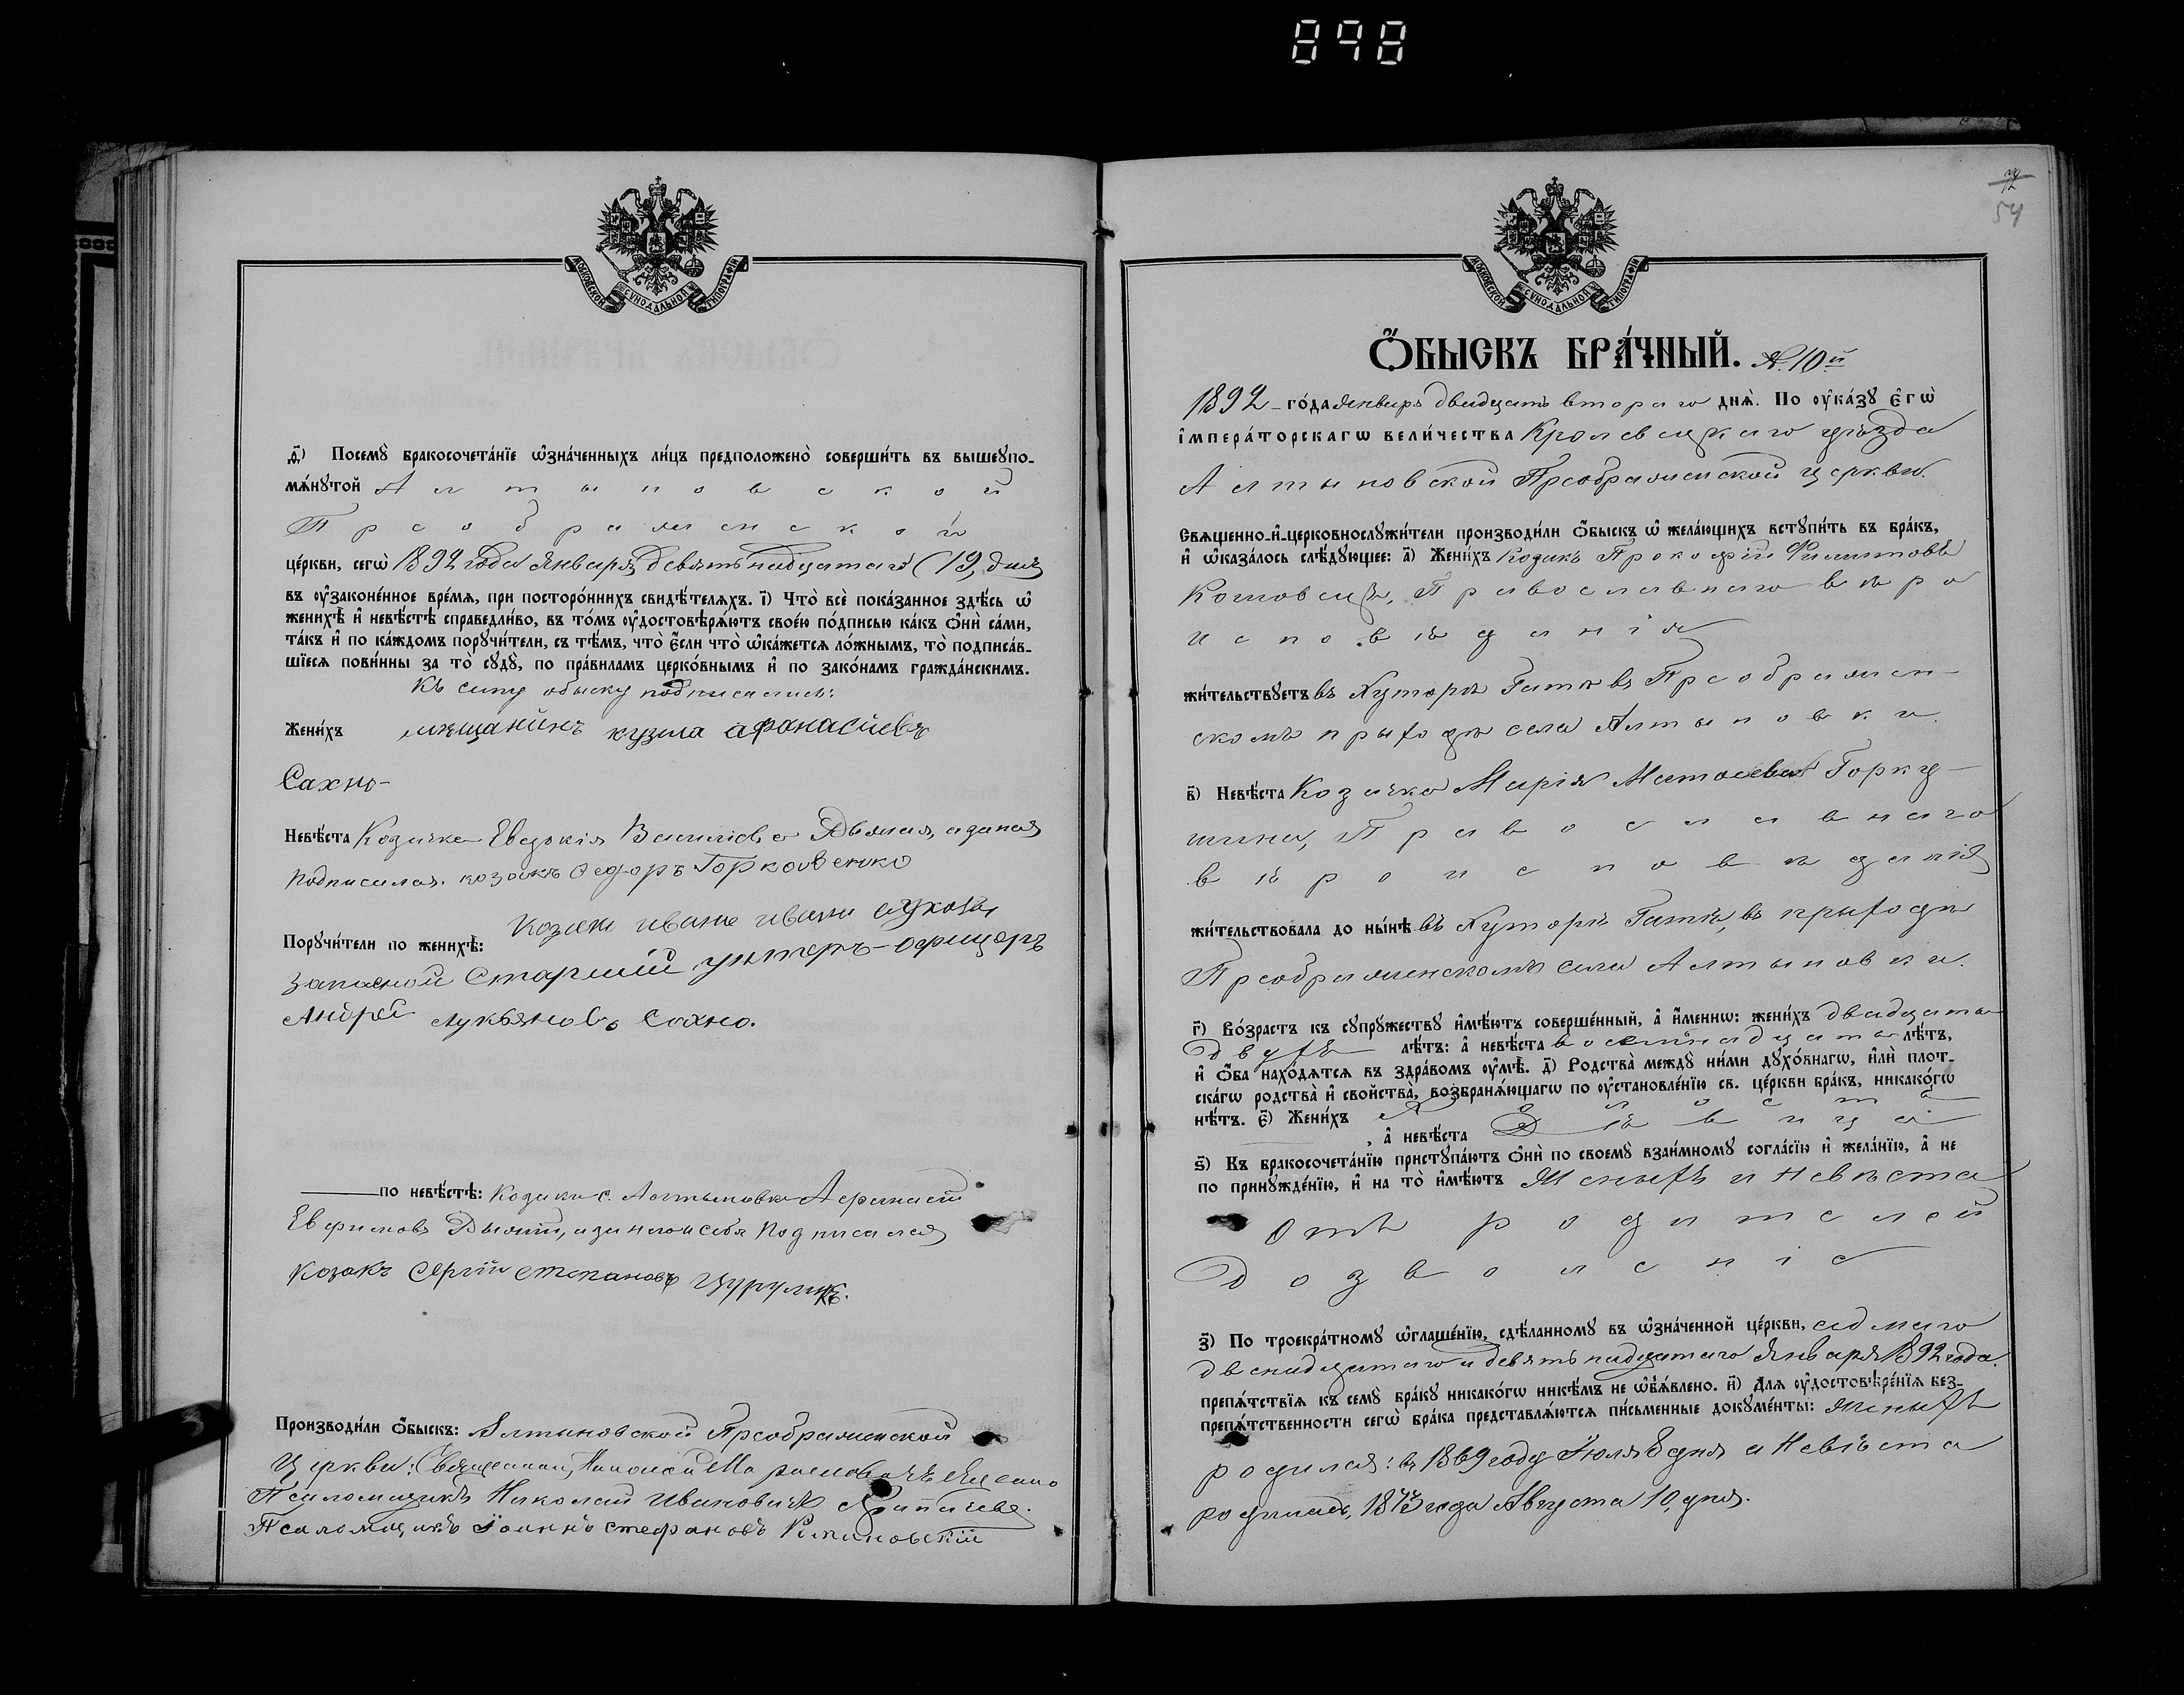 898
МОСКОВСКОЙ СѴНОДАЛЬНОЙ ТИПОГРАФІИ
ѳ҃) Посемꙋ̀ бракосочета́нїе ѡ҆зна́ченныхъ ли́цъ предположено̀ соверши́ть въ вышеꙋпо-
мѧ́нꙋтой Алтыновской
Преображенской
це́ркви, сегѡ̀ 1892 года Января Девятьнадцатаго (19) дня
въ ᲂу҆зако́не́нное вре́мѧ, при посторо́ннихъ свидѣ́телѧхъ. і҃) Что̀ всѐ пока́занное здѣ́сь ѡ҆
женихѣ̀ и҆ невѣ́стѣ справедли́во, въ то́мъ ᲂу҆достовѣрѧ́ютъ свое́ю по́дписью ка́къ ѻ҆нѝ са́ми,
та́къ и҆ по ка́ждомъ порꙋчи́тели, съ тѣ́мъ, что̀ є҆́сли что̀ ѡ҆ка́жетсѧ ло́жнымъ, то̀ подписа́в-
шїесѧ пови́нны за то̀ сꙋдꙋ̀, по пра́виламъ церко́внымъ и҆ по зако́намъ гражда́нскимъ.
Къ сему обыску подписались:
Жени́хъ мѣщанинъ кузма афанасиевъ
Сахно-
Невѣ́ста Козачка Евдокія Василіева Дьяная, а за нея
подписался козакъ Федоръ Горковенко
Порꙋчи́тели по женихѣ̀: козакъ иванъ ивановъ
запасной Старшій унтеръ-офицеръ
Андрей Лукьяновъ Сахно.
по невѣ́стѣ: Козаки с. Алтыновки Афанасій
Евфимовъ, а за него и себя подписался
козакъ Сергій степановъ Цурупикъ.
Производи́ли ѻ҆́быскъ: Алтыновской Преображенской
Церкви: Священникъ
Псаломщикъ Николай Ивановичъ
Псаломщикъ Іоаннъ стефановъ
МОСКОВСКОЙ СѴНОДАЛЬНОЙ ТИПОГРАФІИ
54
Ѻ҆́БЫСКЪ БРА́ЧНЫЙ. №10й
1892 го́да Январь двадцать втораго днѧ̀. По ᲂу҆ка́зꙋ є҆гѡ̀
і҆мпера́торскагѡ вели́чества Кролевецкаго уѣзда
Алтыновской Преображенской церкви.
Свѧще́нно-и҆-церковнослꙋжи́тели производи́ли ѻ҆́быскъ ѡ҆ жела́ющихъ встꙋпи́ть въ бра́къ,
и҆ ѡ҆каза́лось слѣ́дꙋющее: а҃) Жени́хъ Козакъ Прокофій Филиповъ
Православнаго вѣро
исповѣданія
жи́тельствꙋетъ въ Хуторѣ Гатки въ Преображен-
скомъ прыходѣ села Алтыновки.
в҃) Невѣ́ста Козачка Марія Матвеева Горку-
шина, Православнаго
вѣроисповѣданія
жи́тельствовала до ны́нѣ въ Хуторѣ Гатки, въ прыходѣ
Преображенскомъ села Алтыновки.
г҃) Во́зрастъ къ сꙋпрꙋ́жествꙋ и҆мѣ́ютъ соверше́нный, а҆ и҆́меннѡ: жени́хъ двадцать
двухъ лѣ́тъ: а҆ невѣ́ста восемнадцать лѣ́тъ,
и҆ ѻ҆́ба нахо́дѧтсѧ въ здра́вомъ ᲂу҆мѣ̀. д҃) Родства̀ междꙋ̀ ни́ми дꙋхо́внагѡ, и҆лѝ плот-
ска́гѡ родства̀ и҆ сво́йства̀, возбранѧ́ющагѡ по ᲂу҆становле́нїю св. це́ркви бра́къ, никако́гѡ
нѣ́тъ. є҃) Жени́хъ Холостъ
, а҆ невѣ́ста Дѣвица
ѕ҃) Къ бракосочета́нїю пристꙋпа́ютъ ѻ҆нѝ по своемꙋ̀ взаи́мномꙋ согла́сїю и҆ жела́нїю, а҆ не
по принꙋжде́нїю, и҆ на то̀ и҆мѣ́ютъ Женихъ и Невѣста
Отъ родителей
Дозволеніе
з҃) По троекра́тномꙋ ѡ҆глаше́нїю, сдѣ́ланномꙋ въ ѡ҆зна́ченной це́ркви, седмаго
двенадцатаго и девятьнадцатаго Января 1892 года.
препѧ́тствїѧ къ семꙋ̀ бра́кꙋ никако́гѡ никѣ́мъ не ѡ҆б̾ѧ́влено. и҃) Длѧ ᲂу҆достовѣре́нїѧ без-
препѧ́тственности сегѡ̀ бра́ка представлѧ́ютсѧ пи́сьменные докꙋме́нты: Женихъ
родился: въ 1869 году Іюля 8 дня а Невѣста
родилась, 1873 года Августа 10, дня.